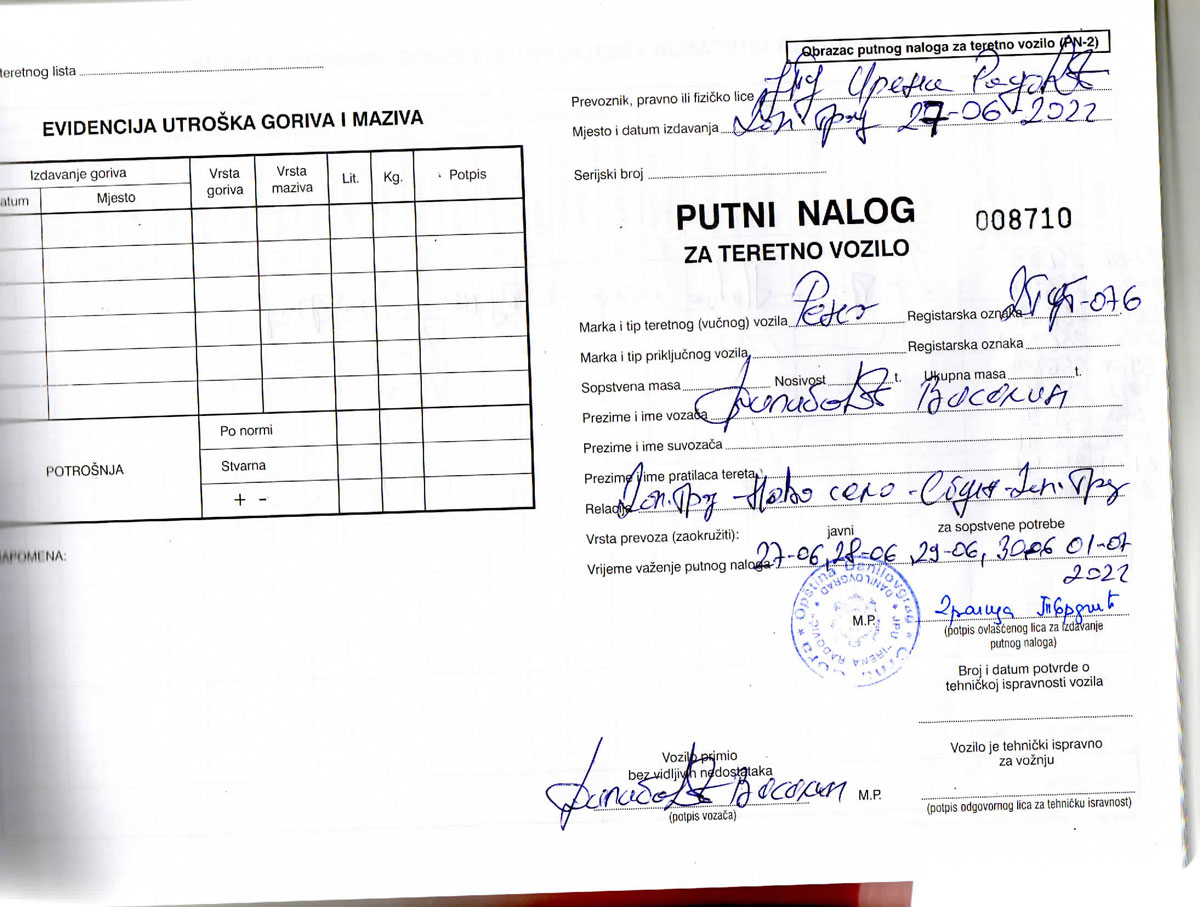 teretnog lista
EVIDENCIJA UTROŠKA GORIVA I MAZIVA
Izdavanje goriva
Vrsta goriva
Vrsta maziva
Lit.
Kg.
Potpis
atum
Mjesto
POTROŠNJA
Po normi
Stvarna
+ -
NAPOMENA:
Obrazac putnog naloga za teretno vozilo (PN-2)
Prevoznik, pravno ili fizičko lice
Mjesto i datum izdavanja 27-06-2022
Serijski broj
PUTNI NALOG 008710
ZA TERETNO VOZILO
Marka i tip teretnog (vučnog) vozila Registarska oznaka -076
Marka i tip priključnog vozila Registarska oznaka
Sopstvena masa Nosivost t. Ukupna masa t.
Prezime i ime vozača
Prezime i ime suvozača
Prezime i ime pratilaca tereta
Relacija - Ново село -
Vrsta prevoza (zaokružiti): javni za sopstvene potrebe
Vrijeme važenje putnog naloga 27-06, 28-06, 29-06, 30-06 01-07
2022
Opština Danilovgrad
JPU "IRENA RADOVIĆ" DANILOVGRAD
M.P.
(potpis ovlašćenog lica za izdavanje
putnog naloga)
Broj i datum potvrde o
tehničkoj ispravnosti vozila
Vozilo je tehnički ispravno
za vožnju
(potpis odgovornog lica za tehničku isravnost)
Vozilo primio
bez vidljivih nedostataka
M.P.
(potpis vozača)